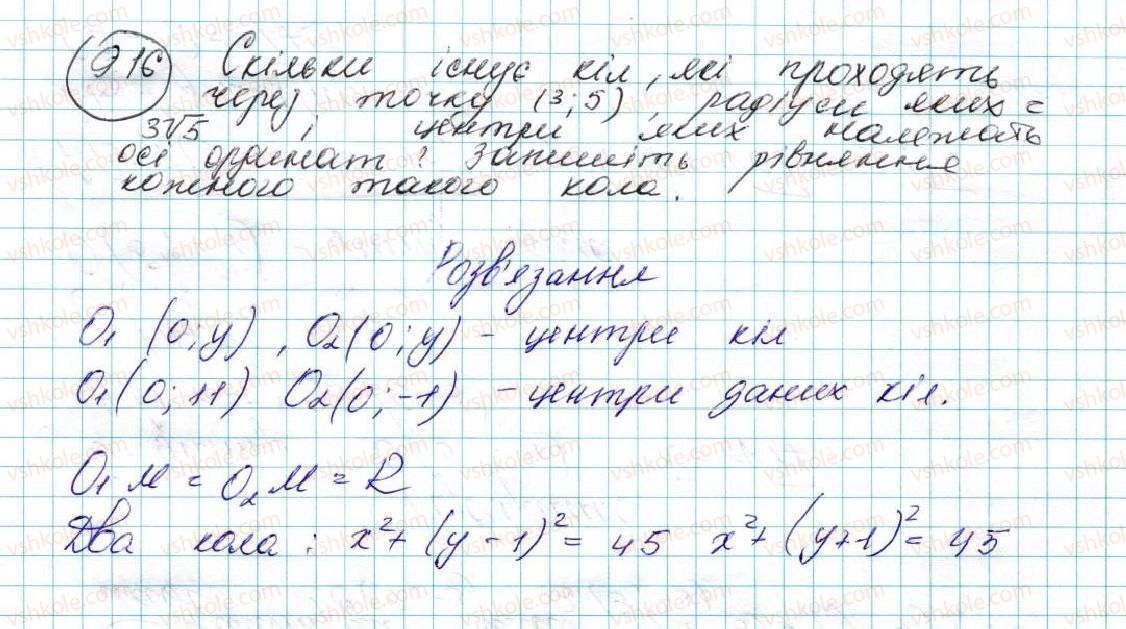 916 Скільки існує кіл, які проходять
через точку (3; 5), радіуси яких =
3√5 і центри яких належать
осі ординат? Запишіть рівняння
кожного такого кола.
Розв'язання
O₁ (0; y), O₂ (0; y) - центри кіл
O₁ (0; 11) O₂ (0; -1) - центри даних кіл.
O₁M = O₂M = R
Два кола: x² + (y - 1)² = 45 x² + (y+1)² = 45